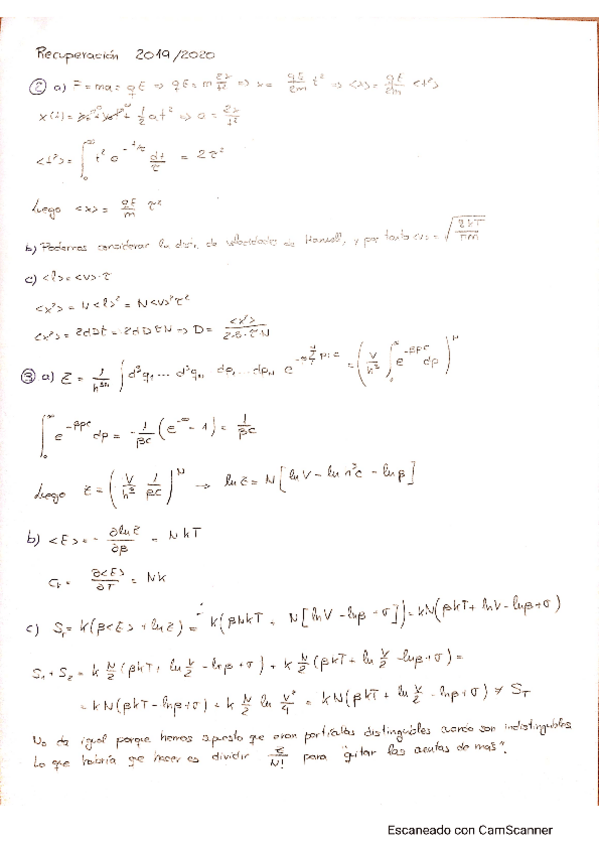 Recuperación 2019/2020
② a) F = ma = qE ⇒ qE = m 2x/t² ⇒ x = qE/2m t² ⇒ <x> = qE/2m <t²>
x(t) = x₀ + v₀t + 1/2 at² ⇒ a = 2x/t²
<t²> = ∫₀^∞ t² e^(-t/τ) dt/τ = 2τ²
Luego <x> = qE/m τ²
b) Podemos considerar la distr. de velocidades de Maxwell, y por tanto
c) <l> = <v>·τ
<x²> = N<l>² = N<v>²τ²
<x²> = 2dDt = 2dDτN ⇒ D =
③ a) Z = 1/h³ᴺ ∫ d³q₁ ... d³qN dp₁ ... dpN = (V/h³ ∫₀^∞ e^(-βpc) dp)^N
∫₀^∞ e^(-βpc) dp = -1/βc (e^(-∞) - 1) = 1/βc
Luego Z = (V/h³ 1/βc)^N → ln Z = N[ln V - ln h³c - ln β]
b) <E> = - ∂ln Z/∂β = NkT
Cv = ∂<E>/∂T = Nk
c) S_T = k(β<E> + ln Z) = k(βNkT + N[ln V - ln β + σ]) = kN(βkT + ln V - ln β + σ)
S₁ + S₂ = k N/2 (βkT + ln V/2 - ln β + σ) + k N/2 (βkT + ln V/2 - ln β + σ) =
= kN(βkT - ln β + σ) + k N/2 ln V²/4 = kN(βkT + ln V/2 - ln β + σ) ≠ S_T
No da igual porque hemos supuesto que eran partículas distinguibles cuando son indistinguibles
Lo que habría que hacer es dividir Z/N! para "quitar las cuentas de más".
Escaneado con CamScanner